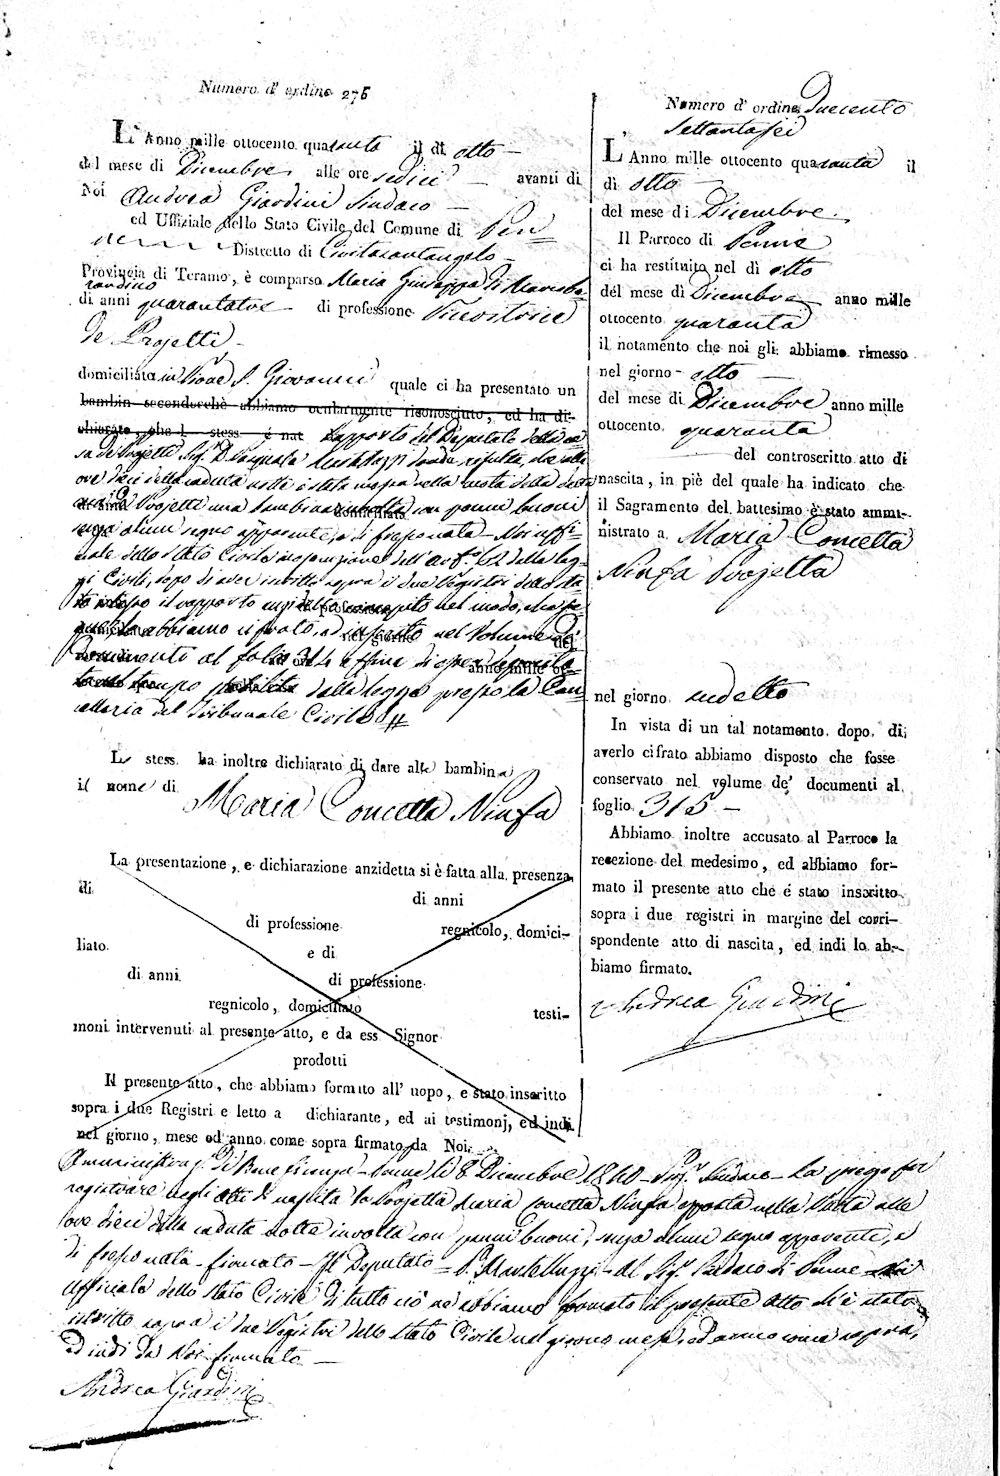 Numero d' ordine 276
L' Anno mille ottocento quaranta il dì otto
del mese di Dicembre alle ore sedici avanti di
Noi Andrea Giardini Sindaco
ed Uffiziale dello Stato Civile del Comune di Pen=
ne Distretto di Civitasantangelo
Provincia di Teramo, è comparso Maria Giuseppa di
di anni quarantatre di professione Ricevitrice
de Projetti
domiciliata in Rione S. Giovanni quale ci ha presentato un
bambin secondochè abbiamo ocularmente riconosciuto, ed ha di-
chiarato, che l stess è nat rapporto del Deputato della ca=
sa de Projetti Sig. D. Pasquale risulta, che alle
ore dieci della caduta notte è stata nella ruota della
Projetti una bambina involta con panni buoni
senza alcun segno apparente, e di fresco nata - Noi uffi=
ziale dello Stato Civile in esecuzione dell' art. 62 delle leg=
gi Civili, dopo di aver inscritto sopra i due Registri dello sta=
to il rapporto nel modo, che
abbiamo cifrato, ed inserito nel Volume de'
Documenti al folio 314 affine di esser
tempo stabilito dalla legge presso la Can=
celleria del Tribunale Civile
L stess ha inoltre dichiarato di dare alla bambina
il nome di Maria Concetta Ninfa
La presentazione, e dichiarazione anzidetta si è fatta alla presenza
di di anni
di professione regnicolo, domici-
liato e di
di anni di professione
regnicolo, domiciliato testi-
moni intervenuti al presente atto, e da ess Signor
prodotti
Il presente atto, che abbiamo formato all' uopo, e stato inscritto
sopra i due Registri e letto a dichiarante, ed ai testimonj, ed indi
nel giorno, mese ed anno come sopra firmato da Noi
di Beneficenza - Penne li 8 Dicembre 1840 - Sig. Sindaco - La prego far
registrare negli atti di nascita la Projetta Maria Concetta Ninfa esposta nella Ruota alle
ore dieci della caduta notte involta con panni buoni, senza alcun segno apparente, e
di fresco nata - firmato - Il Deputato - P. - Al Sig. Sindaco di Penne
Uffiziale dello Stato Civile di tutto ciò ne abbiamo formato il presente atto ch' è stato
iscritto sopra i due Registri dello Stato Civile nel giorno mese, ed anno come sopra,
ed indi da Noi firmato
Andrea Giardini
Numero d' ordine Duecento
settantasei
L' Anno mille ottocento quaranta il
di otto
del mese di Dicembre
Il Parroco di Penne
ci ha restituito nel dì otto
del mese di Dicembre anno mille
ottocento quaranta
il notamento che noi gli abbiamo rimesso
nel giorno otto
del mese di Dicembre anno mille
ottocento quaranta
del controscritto atto di
nascita, in piè del quale ha indicato che
il Sagramento del battesimo è stato ammi-
nistrato a Maria Concetta
Ninfa Projetta
nel giorno sudetto
In vista di un tal notamento dopo di
averlo cifrato abbiamo disposto che fosse
conservato nel volume de' documenti al
foglio 315
Abbiamo inoltre accusato al Parroco la
recezione del medesimo, ed abbiamo for-
mato il presente atto che é stato inscritto
sopra i due registri in margine del corri-
spondente atto di nascita, ed indi lo ab-
biamo firmato.
Andrea Giardini